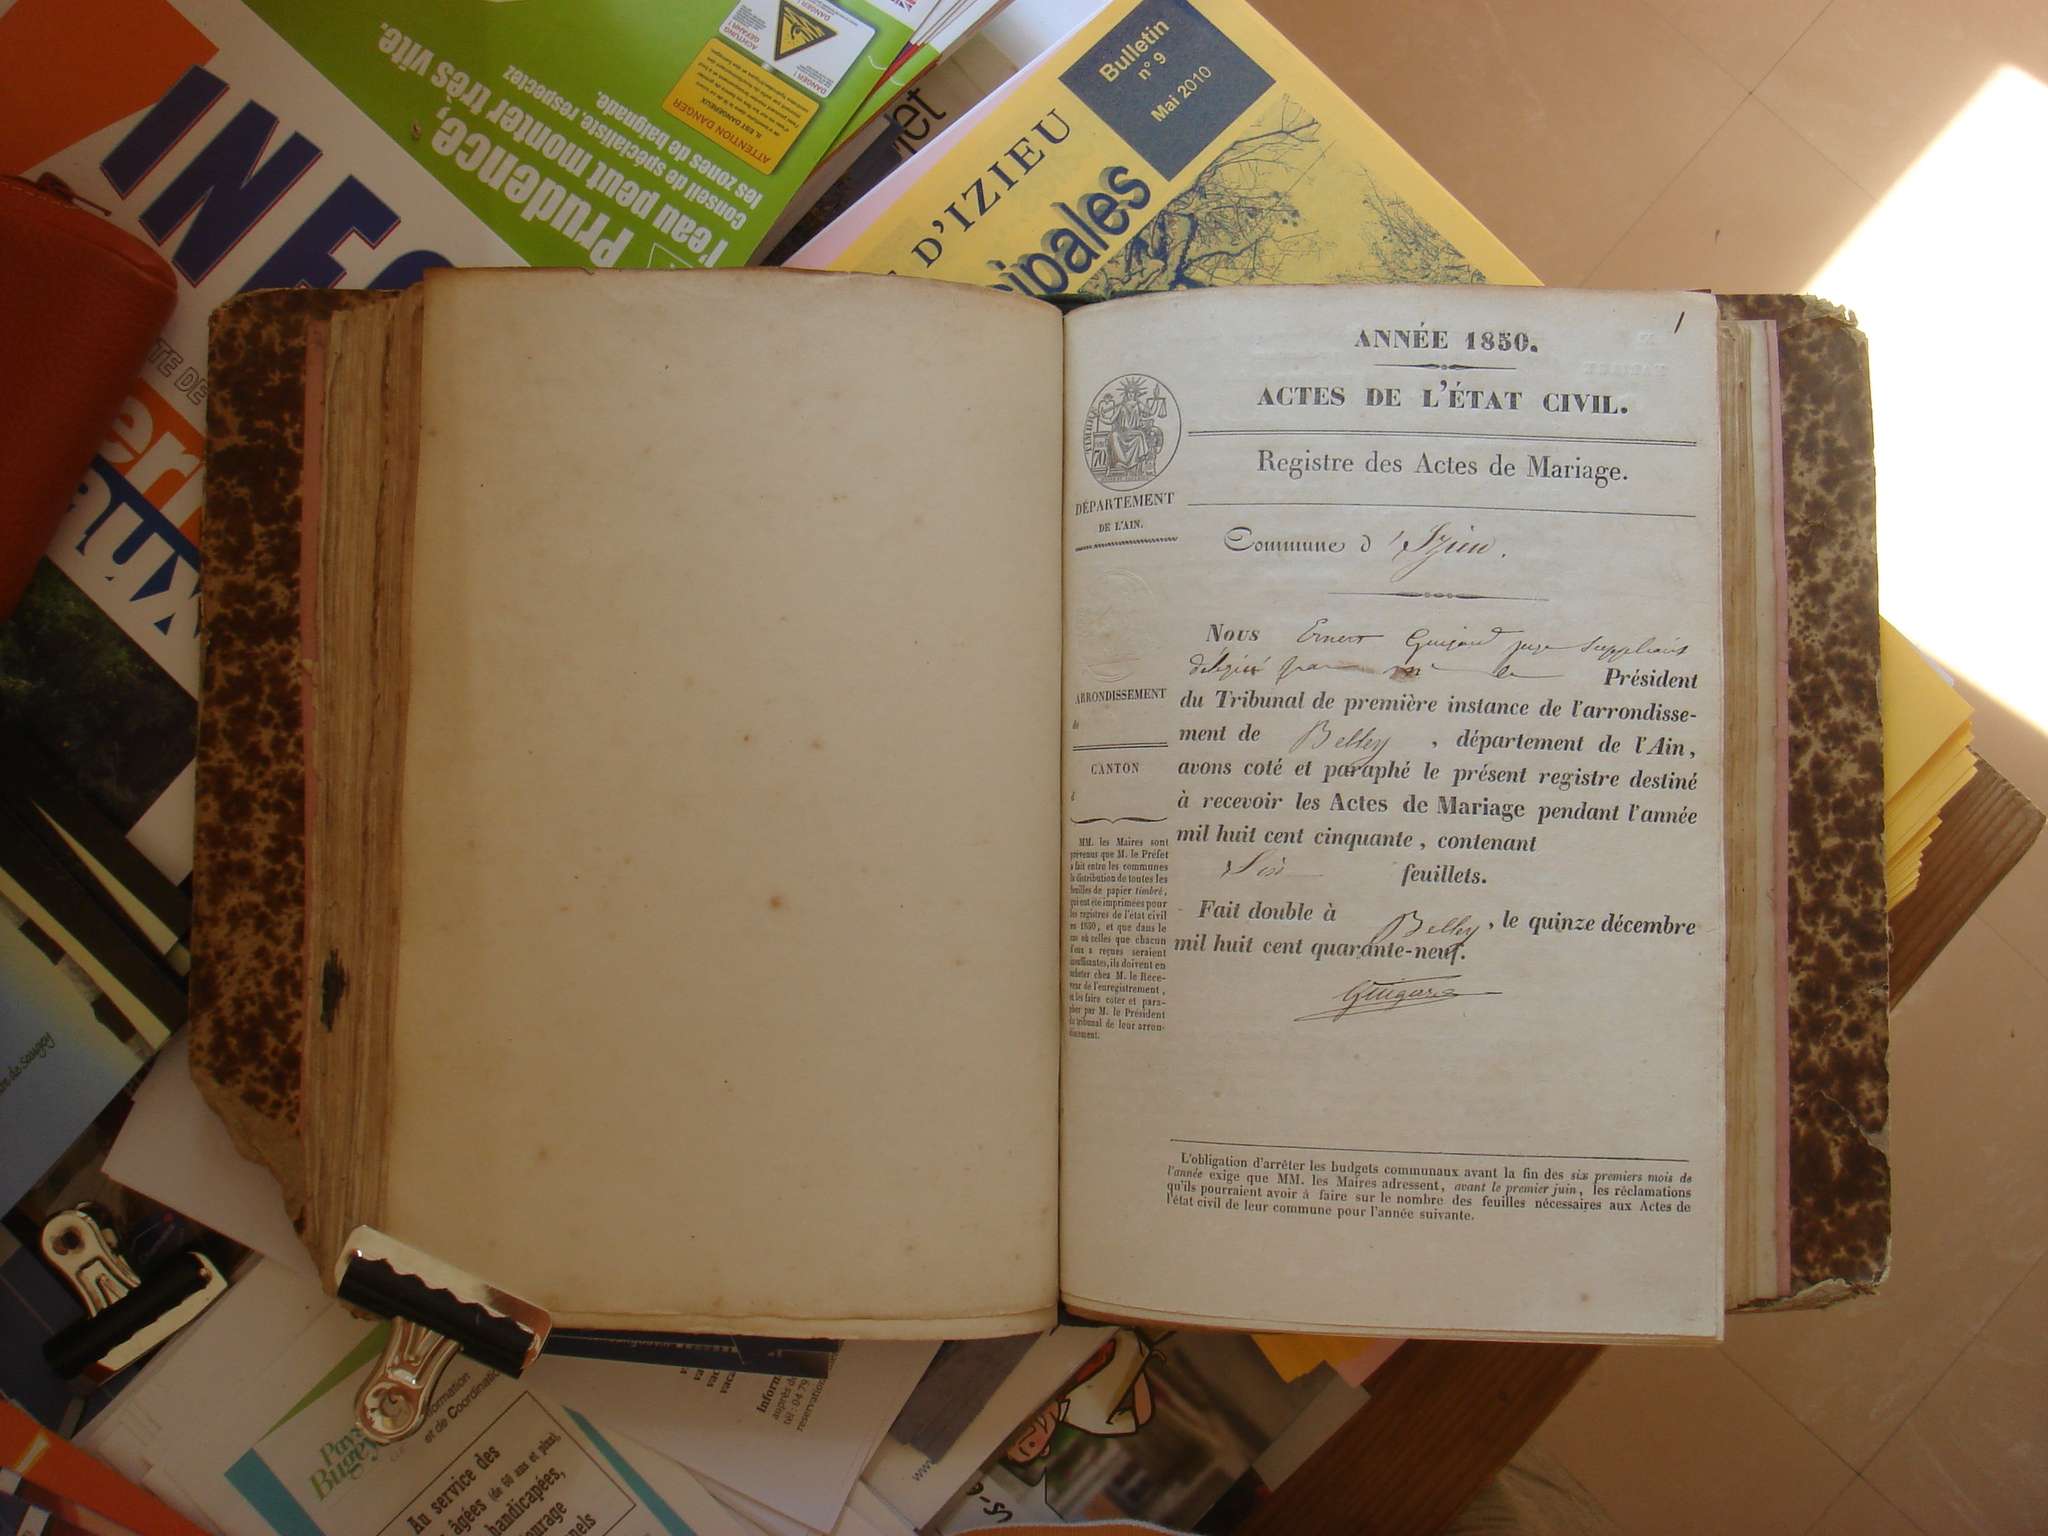 INFO
Prudence,
l'eau peut monter très vite.
Conseil de spécialiste, respectez
les zones de baignade.
ATTENTION DANGER
IL EST DANGEREUX
ACHTUNG
GEFAHR !
DANGER !
Bulletin
n° 9
Mai 2010
D'IZIEU
cipales
1
ANNÉE 1850.
ACTES DE L'ÉTAT CIVIL.
Registre des Actes de Mariage.
TIMBRE
70
DÉPARTEMENT
DE L'AIN.
Commune d'Izieu.
Nous Ernest Guigard juge suppléant
délégué par mr le Président
du Tribunal de première instance de l'arrondisse-
ment de Belley, département de l'Ain,
avons coté et paraphé le présent registre destiné
à recevoir les Actes de Mariage pendant l'année
mil huit cent cinquante, contenant
Six feuillets.
Fait double à Belley, le quinze décembre
mil huit cent quarante-neuf.
Guigard
ARRONDISSEMENT
de
CANTON
d
MM. les Maires sont
prévenus que M. le Préfet
a fait entre les communes
la distribution de toutes les
feuilles de papier timbré,
qui ont été imprimées pour
les registres de l'état civil
en 1850, et que dans le
cas où celles que chacun
d'eux a reçues seraient
insuffisantes, ils doivent en
acheter chez M. le Rece-
veur de l'enregistrement,
et les faire coter et para-
pher par M. le Président
du tribunal de leur arron-
dissement.
L'obligation d'arrêter les budgets communaux avant la fin des six premiers mois de
l'année exige que MM. les Maires adressent, avant le premier juin, les réclamations
qu'ils pourraient avoir à faire sur le nombre des feuilles nécessaires aux Actes de
l'état civil de leur commune pour l'année suivante.
TE DE
aux
Pays
Bugey
ormation
et de Coordination
Au service des
âgées (de 60 ans et plus),
handicapées,
Inform
auprès de
tél : 04 79
reservation